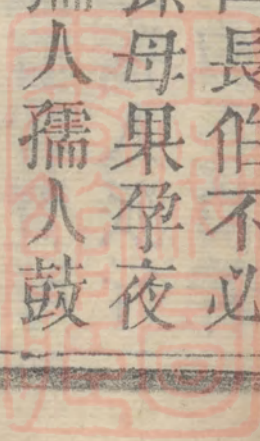 長伯不必
母果孕夜
人孺人鼓